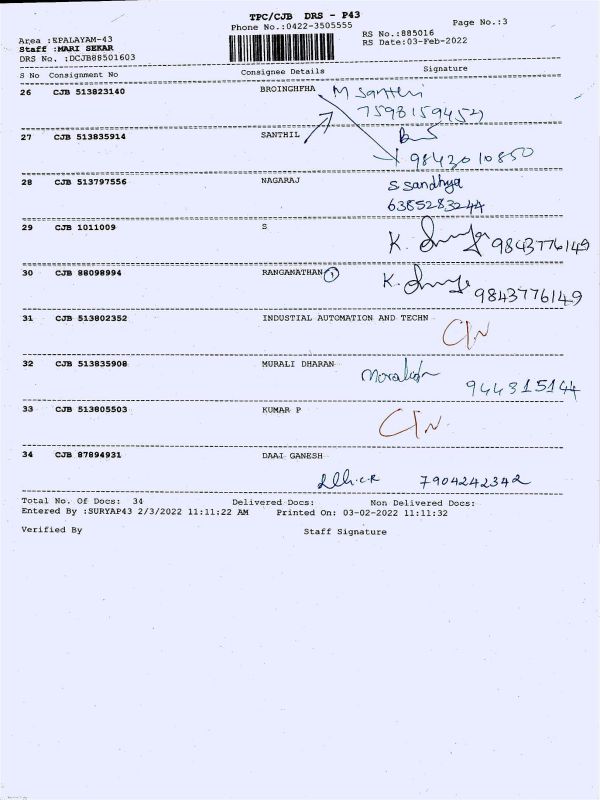 TPC/CJB DRS - P43
Phone No.:0422-3505555
Page No.:3
Area :EPALAYAM-43
Staff :MARI SEKAR
DRS No. :DCJB88501603
RS No.:885016
RS Date:03-Feb-2022
S No Consignment No Consignee Details Signature
26 CJB 513823140 BROINGHFHA M Santhi
7598159452
27 CJB 513835914 SANTHIL
9843010850
28 CJB 513797556 NAGARAJ S Sandhya
6385283244
29 CJB 1011009 S
K. 9843776149
30 CJB 88098994 RANGANATHAN 1
K. 9843776149
31 CJB 513802352 INDUSTIAL AUTOMATION AND TECHN
32 CJB 513835908 MURALI DHARAN
944315144
33 CJB 513805503 KUMAR P
34 CJB 87894931 DAAI GANESH
7904242342
Total No. Of Docs: 34 Delivered Docs: Non Delivered Docs:
Entered By :SURYAP43 2/3/2022 11:11:22 AM Printed On: 03-02-2022 11:11:32
Verified By Staff Signature